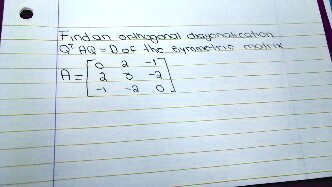 Find an orthogonal diagonalization
Qᵀ AQ = D of the symmetric matrix
A = [ 0 2 -1
2 3 -2
-1 -2 0 ]